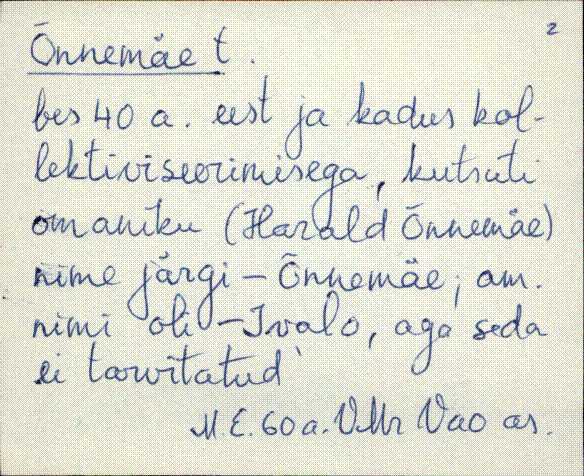 2
Õnnemäe t.
bes 40 a. eest ja kadus kol-
lektiviseerimisega, kutsuti
omaniku (Harald Õnnemäe)
nime järgi – Õnnemäe; am.
nimi oli – Ivalo, aga seda
ei tarvitatud
M. E. 60 a. VMr Vao as.